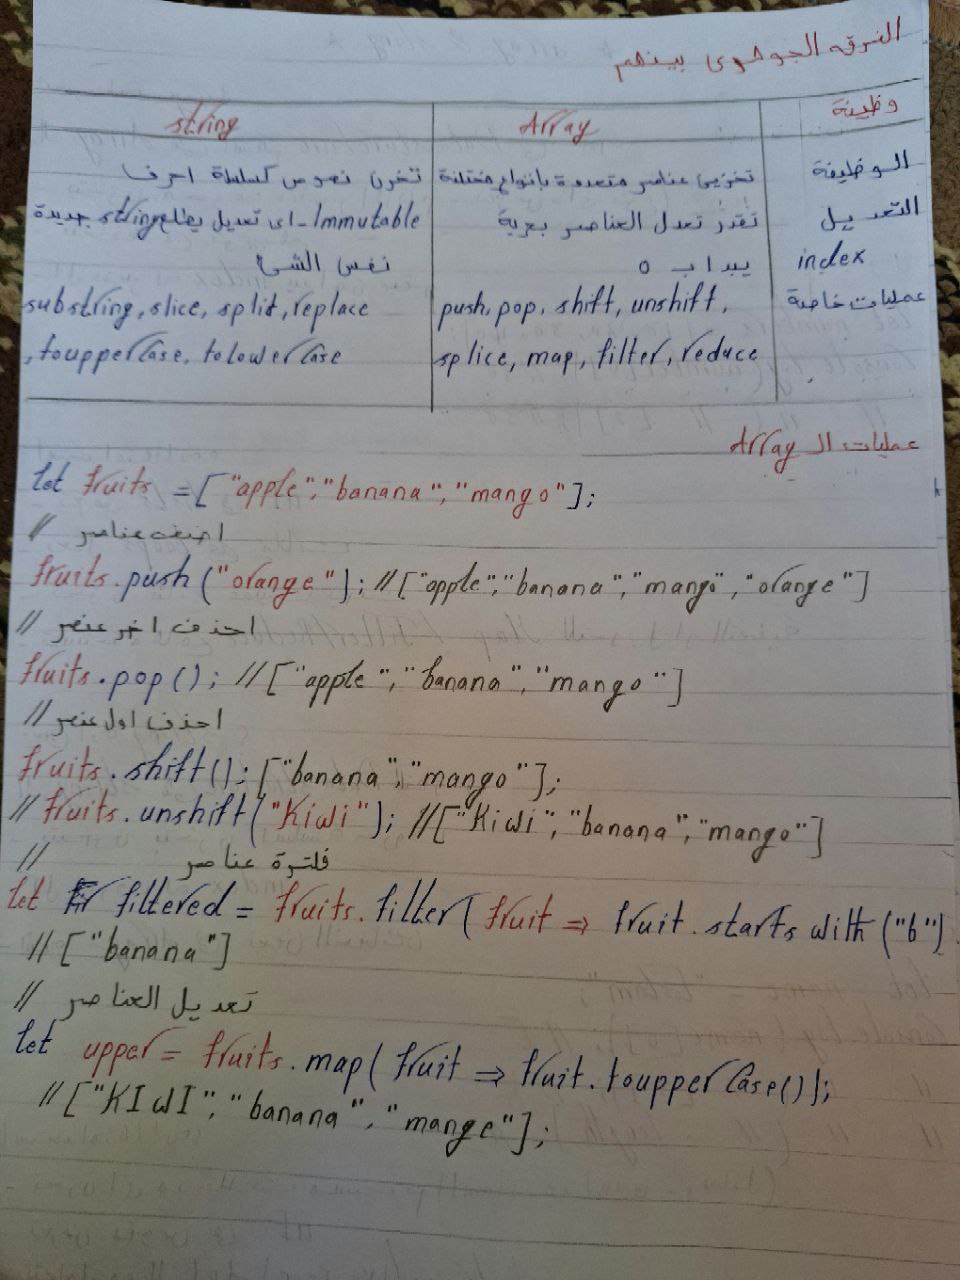 الفرقه الجوهرى بينهم
وظيفة Array string
الوظيفة تخزين عناصر متعددة بانواع مختلفة تخزن نصوص كسلسلة احرف
التعديل تقدر تعدل العناصر بحرية Immutable - اى تعديل يطلع string جديدة
index يبدا ب 0 نفس الشئ
عمليات خاصة push, pop, shift, unshift, substring, slice, split, replace
splice, map, filter, reduce , toupperCase, tolowerCase
عمليات الـ Array
let fruits = ["apple","banana","mango"];
// اضف عناصر
fruits.push ("orange"); //["apple","banana","mango","orange"]
// احذف اخر عنصر
fruits.pop(); //["apple","banana","mango"]
// احذف اول عنصر
fruits.shift(); ["banana","mango"];
// fruits.unshift("Kiwi"); //["Kiwi","banana","mango"]
// فلترة عناصر
let filtered = fruits.filter(fruit => fruit.starts with ("b")
//["banana"]
// تعديل العناصر
let upper = fruits.map(fruit => fruit.toupperCase());
//["KIWI","banana","mange"];